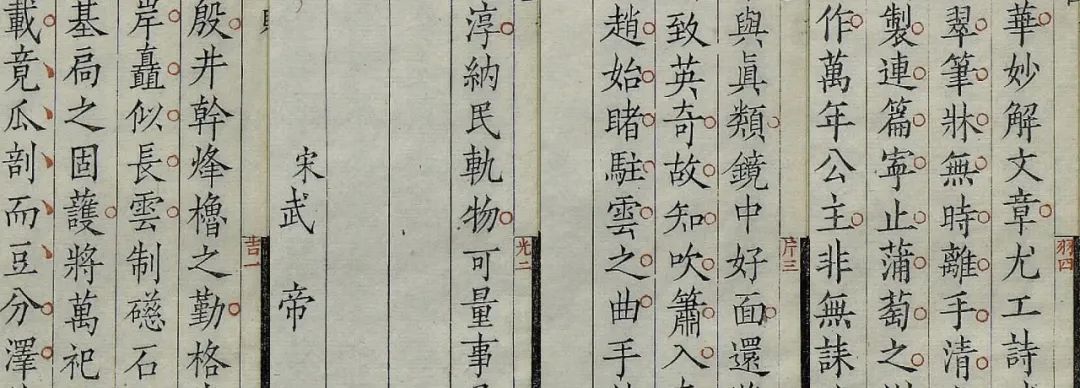 羽四
華妙解文章尤工詩
翠筆牀無時離手清
製連篇寧止蒲萄之
作萬年公主非無誄
片三
與眞類鏡中好面還
致英奇故知吹簫入
趙始睹駐雲之曲手
光二
淳納民軌物可量事
宋武帝
吉一
殷井幹烽櫓之勤格
岸矗似長雲制礠石
基扃之固護將萬祀
載竟瓜剖而豆分澤